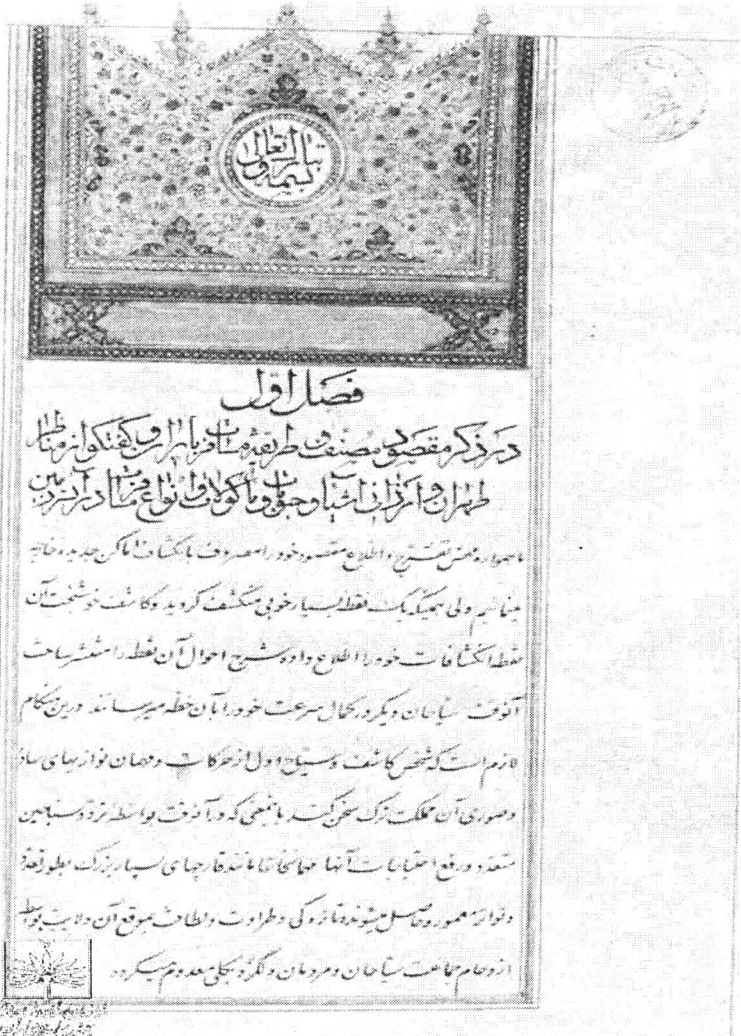 بسمه تبارک و تعالی
فصل اول
در ذکر مقصود مصنف و طریقه مسافرت با ایران و گفتگو از مناظر
طهران و ارزانی اشیا و حبوبات و ماکولات و انواع در این زمین
ما همواره محض تفرج و اطلاع مقصود خود را مصروف بانکشاف اماکن جدیده خارجه
مینمائیم ولی همینکه یک نقطه بسیار خوبی منکشف گردید و کاشف خوشبخت آن
نقطه انکشافات خود را اطلاع داده شرح احوال آن نقطه را منتشر ساخت
آنوقت سیاحان دیگر در کمال سرعت خود را بآن خطه میرسانند درین هنگام
لازم است که شخص کاشف و سیاح اول از حرکات و مهمان نوازیهای ساده
و صوری آن مملکت ترک سخن کند باینمعنی که در آنوقت بواسطه تردد سیاحین
متعدد و رفع احتیاجات آنها مهمانخانها مانند قارچهای بسیار بزرگ بطور
معمور و حاصل میشوند و تازگی و طراوت و لطافت موقع آن ولایت بواسطه
ازدحام جماعت سیاحان و مردمان ولگرد بکلی معدوم میگردد